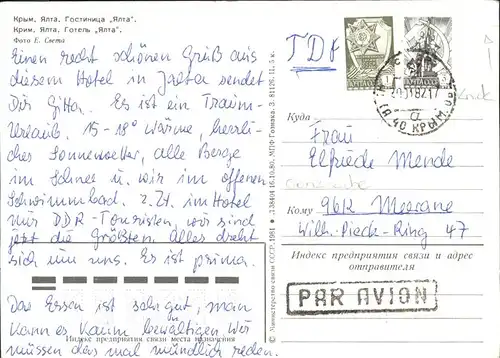 Крым. Ялта. Гостиница „Ялта".
Крим. Ялта. Готель „Ялта".
Фото Е. Света
Einen recht schönen Gruß aus
diesem Hotel in Jalta sendet
Dir Gitta. Es ist ein Traum-
Urlaub. 15-18° Wärme, herrli-
ches Sonnenwetter, alle Berge
im Schnee u. wir im offenen
Schwimmbad. z. Zt. im Hotel
nur DDR-Touristen, wir sind
jetzt die Größten. Alles dreht
sich um uns. Es ist prima.
Das Essen ist sehr gut, man
kann es kaum bewältigen. Wir
müssen das mal mündlich reden.
Индекс предприятия связи места назначения
© Министерство связи СССР. 1981 З 38404 16.10.80. МПФ Гознака. З. 81126. Ц. 5 к.
КРЫМ
Куда
Frau
Elfriede Mende
Кому
9612 Meerane
Wilh.-Pieck-Ring 47
Индекс предприятия связи и адрес
отправителя
PAR AVION